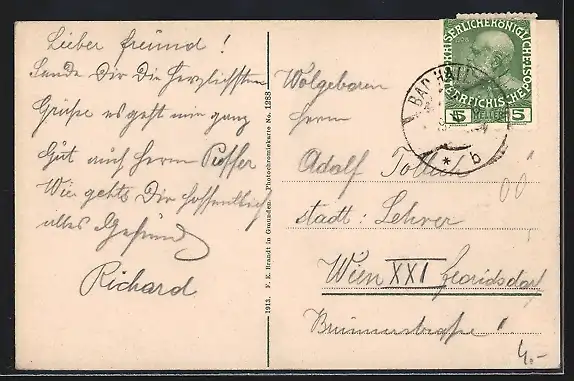 Lieber freund!
Sende Dir Die Herzlichsten
Grüße es geht mir ganz
Gut auch Herrn
Wie gehts Dir hoffentlich
alles Gesund
Richard
1913. F. E. Brandt in Gmunden. Photochromiekarte No. 1288
Wolgebaren
Herrn
Adolf
stadt: Lehrer
Wien XXI floridsdorf
Brünnerstrasse
4.-
KAISERLICHE KÖNIGLICHE ÖSTERREICHISCHE
1908
5 HELLER 5
BAD HALL
* b